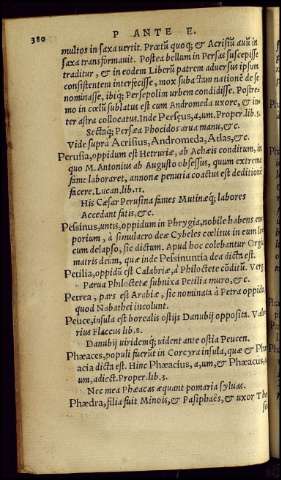 380 P ANTE E.
multos in saxa uertit. Prætũ quoq; & Acrisiũ auũ in
saxa transformauit. Postea bellum in Persas suscepisse
traditur, & in eodem Liberũ patrem aduersus ipsum
consistentem interfecisse, mox subactam nationẽ de se
nominasse, ibiq; Persepolim urbem condidisse. Postre,
mo in cœlũ sublatus est cum Andromeda uxore, & in,
ter astra collocatus. Inde Perseus, a, um, Proper. lib. 3.
Sectaq; Persææ Phocidos arua manu, & c.
Vide supra Acrisius, Andromeda, Atlas, & c.
Perusia, oppidum est Hetruriæ, ab Achæis conditum, in
quo M. Antonius ab Augusto obsessus, quum extrema
fame laboraret, annonæ penuria coactus est deditionẽ
facere. Lucan. lib. 11.
His Cæsar Perusina fames Mutinæq; labores
Accedant fatis, & c.
Pessinus, untis, oppidum in Phrygia, nobile habens em
porium, à simulacro deæ Cybeles cœlitus in eum lo
cum delapso, sic dictum. Apud hoc celebantur Orgia
matris deûm, quæ inde Pessinuntia dea dicta est.
Petilia, oppidũ est Calabriæ, à Philoctete cõditũ. Verg.
Parua Philoctetæ subnixa Petilia muro, & c.
Petrea, pars est Arabiæ, sic nominata à Petra oppido
quod Nabathei incolunt.
Peuce, insula est borealis ostijs Danubij opposita. Vale
rius Flaccus lib. 8.
Danubij uiridemq; uident ante ostia Peucen.
Phæaces, populi fuerũt in Corcyra insula, quæ & Phæ
acia dicta est. Hinc Phæacius, a, um, & Phæacus, a,
um, adiect. Proper. lib. 3.
Nec mea Phæacas æquant pomaria syluas.
Phædra, filia fuit Minois, & Pasiphaës, & uxor The